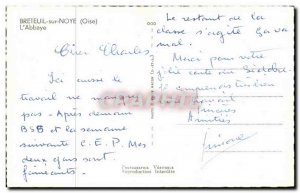 BRETEUIL-sur-NOYE (Oise)
L'Abbaye
Cher Charles,
Ici aussi le
travail ne manque
pas. Après demain
BSB et la semaine
suivante C.E.P. Mes
deux gars sont
fainéants.
Le restant de la
classe s'agite ça va
mal.
Merci pour votre
jolie carte du
Je comprends
travail
Sincères
Amitiés
Simone
Reproduction Interdite